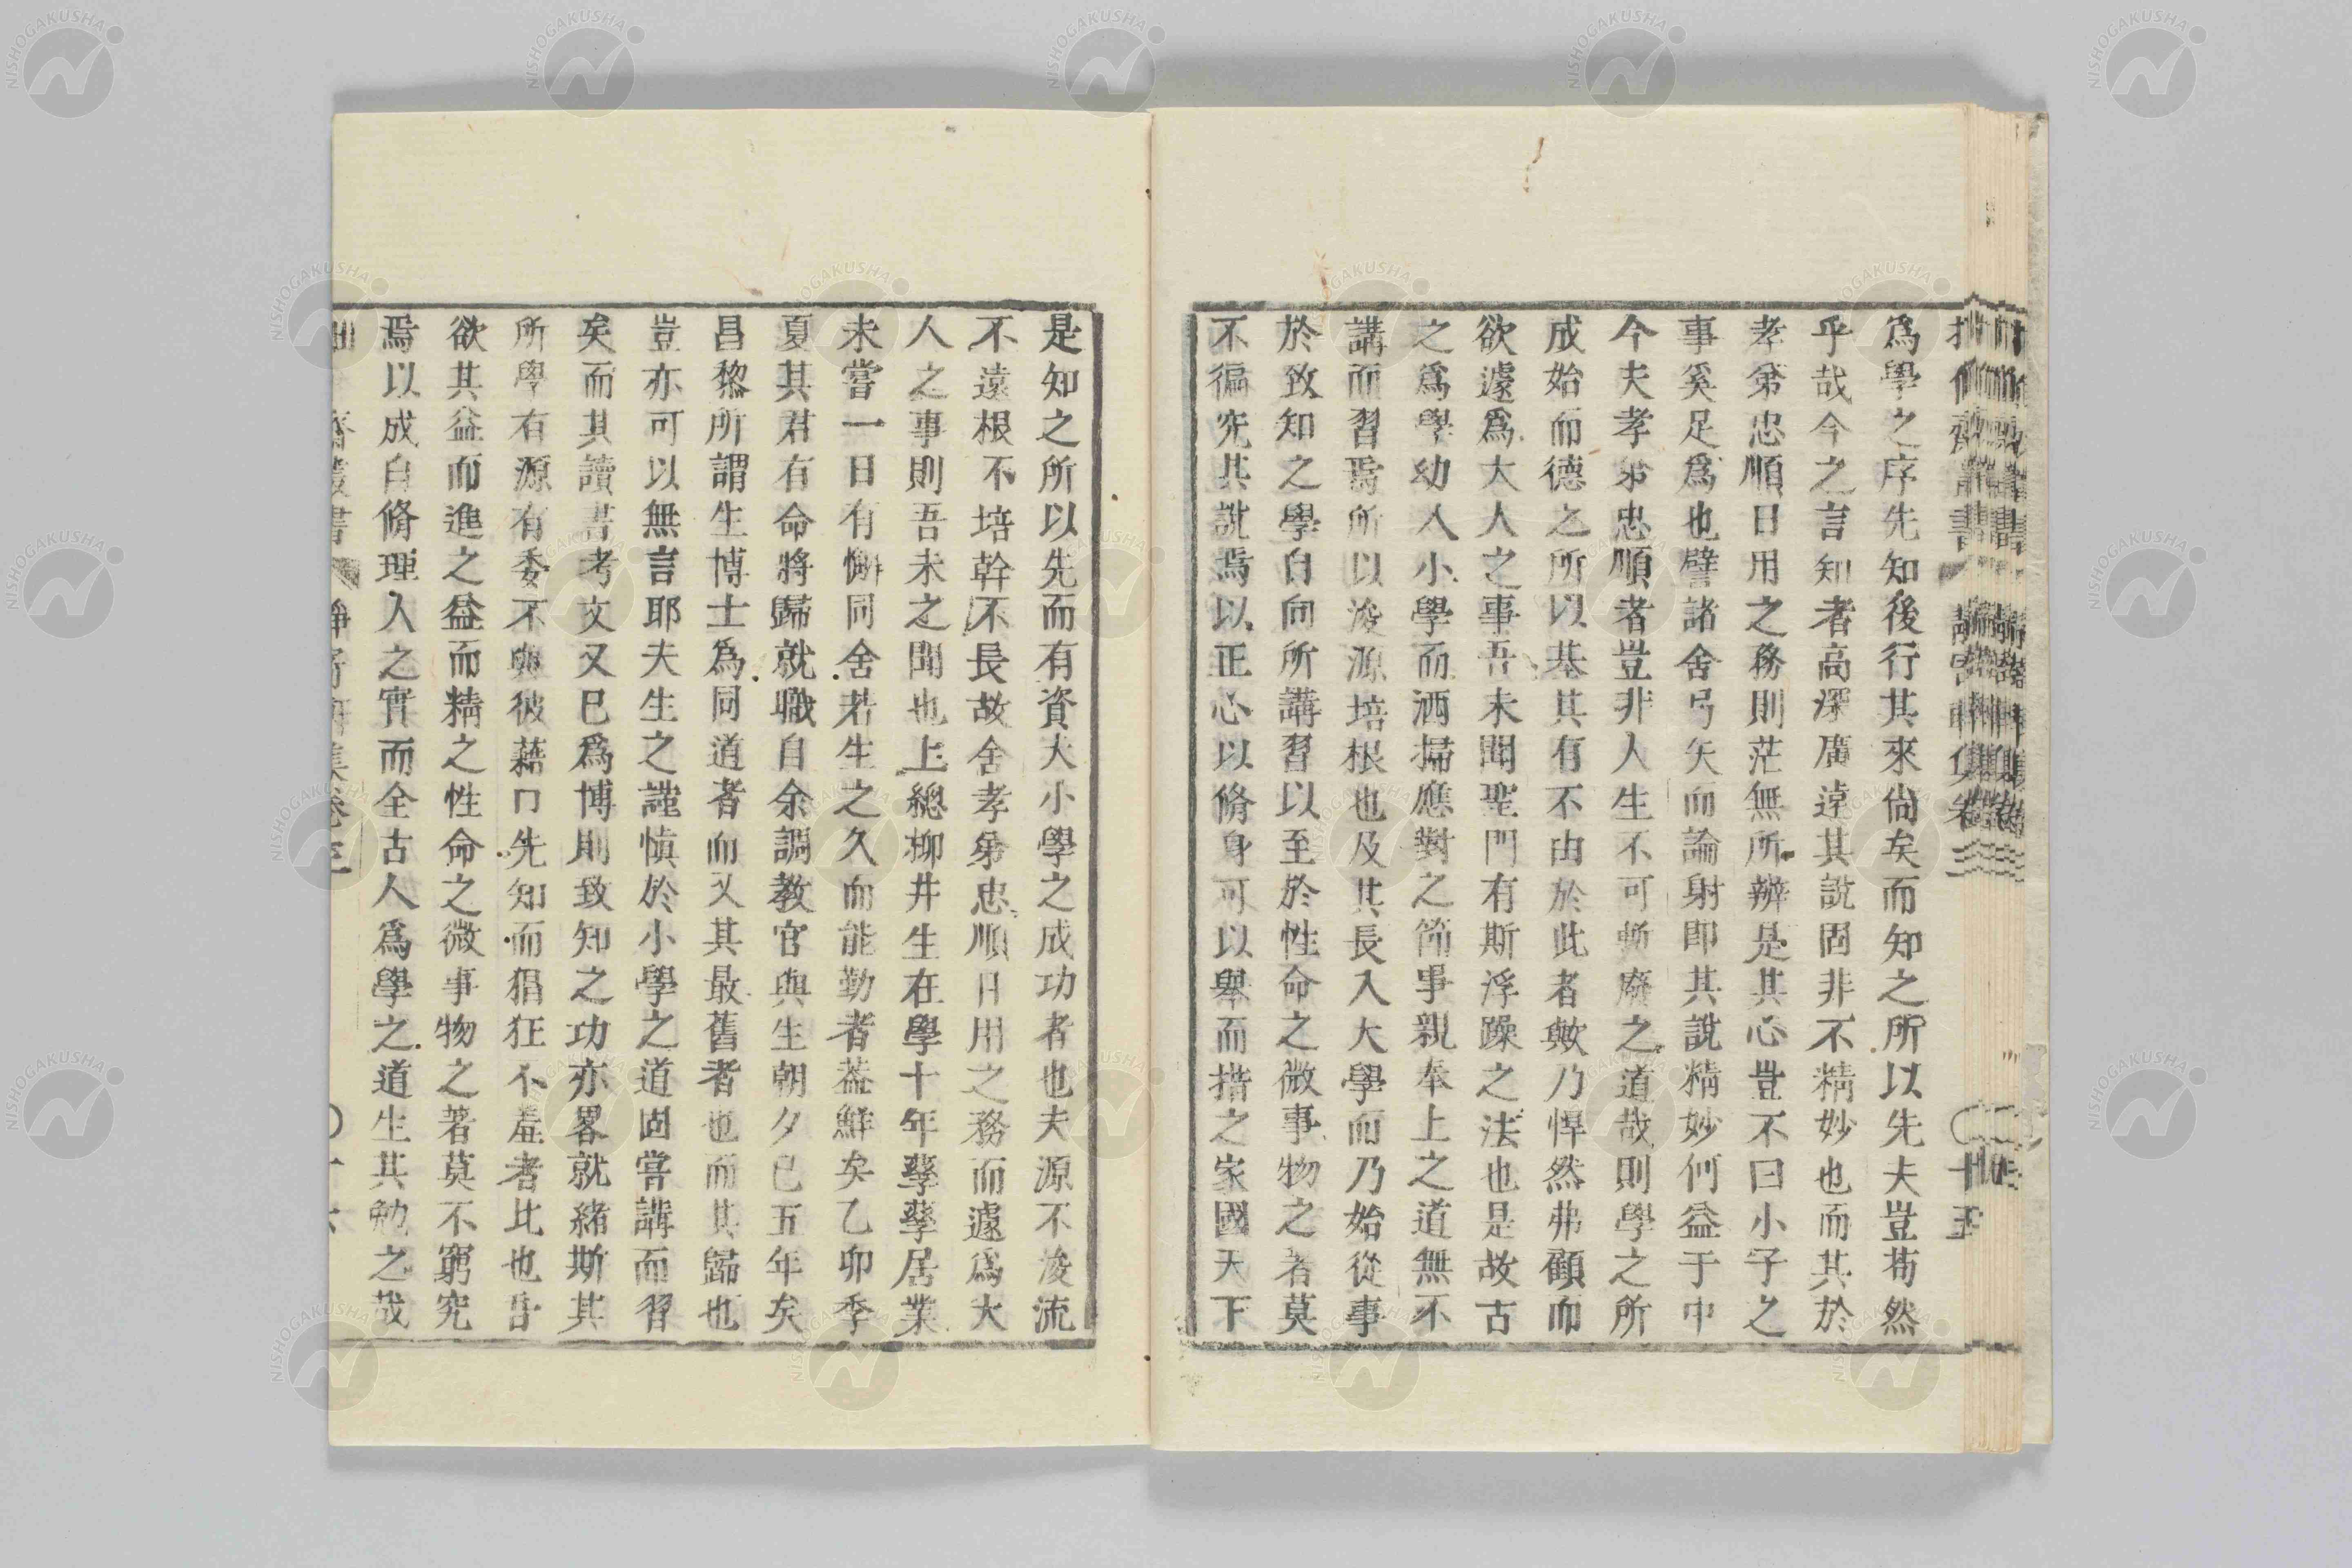 爲學之序先知後行其來尙矣而知之所以先夫豈苟然
乎哉今之言知者高深廣遠其說固非不精妙也而其於
孝弟忠順日用之務則茫無所辨是其心豈不曰小子之
事奚足爲也譬諸舍弓矢而論射卽其說精妙何益于中
今夫孝弟忠順者豈非人生不可斯廢之道哉則學之所
成始而德之所以基其有不由於此者歟乃悍然弗顧而
欲遽爲大人之事吾未聞聖門有斯浮躁之法也是故古
之爲學幼入小學而洒掃應對之節事親奉上之道無不
講而習焉所以浚源培根也及其長入大學而乃始從事
於致知之學自向所講習以至於性命之微事物之著莫
不徧究其說焉以正心以脩身可以舉而措之家國天下
是知之所以先而有資大小學之成功者也夫源不浚流
不遠根不培幹不長故舍孝弟忠順日用之務而遽爲大
人之事則吾未之聞也上總柳井生在學十年孳孳居業
未嘗一日有懈同舍若生之久而能勤者蓋鮮矣乙卯季
夏其君有命將歸就職自余調教官與生朝夕已五年矣
昌黎所謂生博士爲同道者而又其最舊者也而其歸也
豈亦可以無言耶夫生之謹愼於小學之道固嘗講而習
矣而其讀書考文又已爲博則致知之功亦畧就緒斯其
所學有源有委不與彼藉口先知而猖狂不羞者比也吾
欲其益而進之益而精之性命之微事物之著莫不窮究
焉以成自脩理人之實而全古人爲學之道生其勉之哉